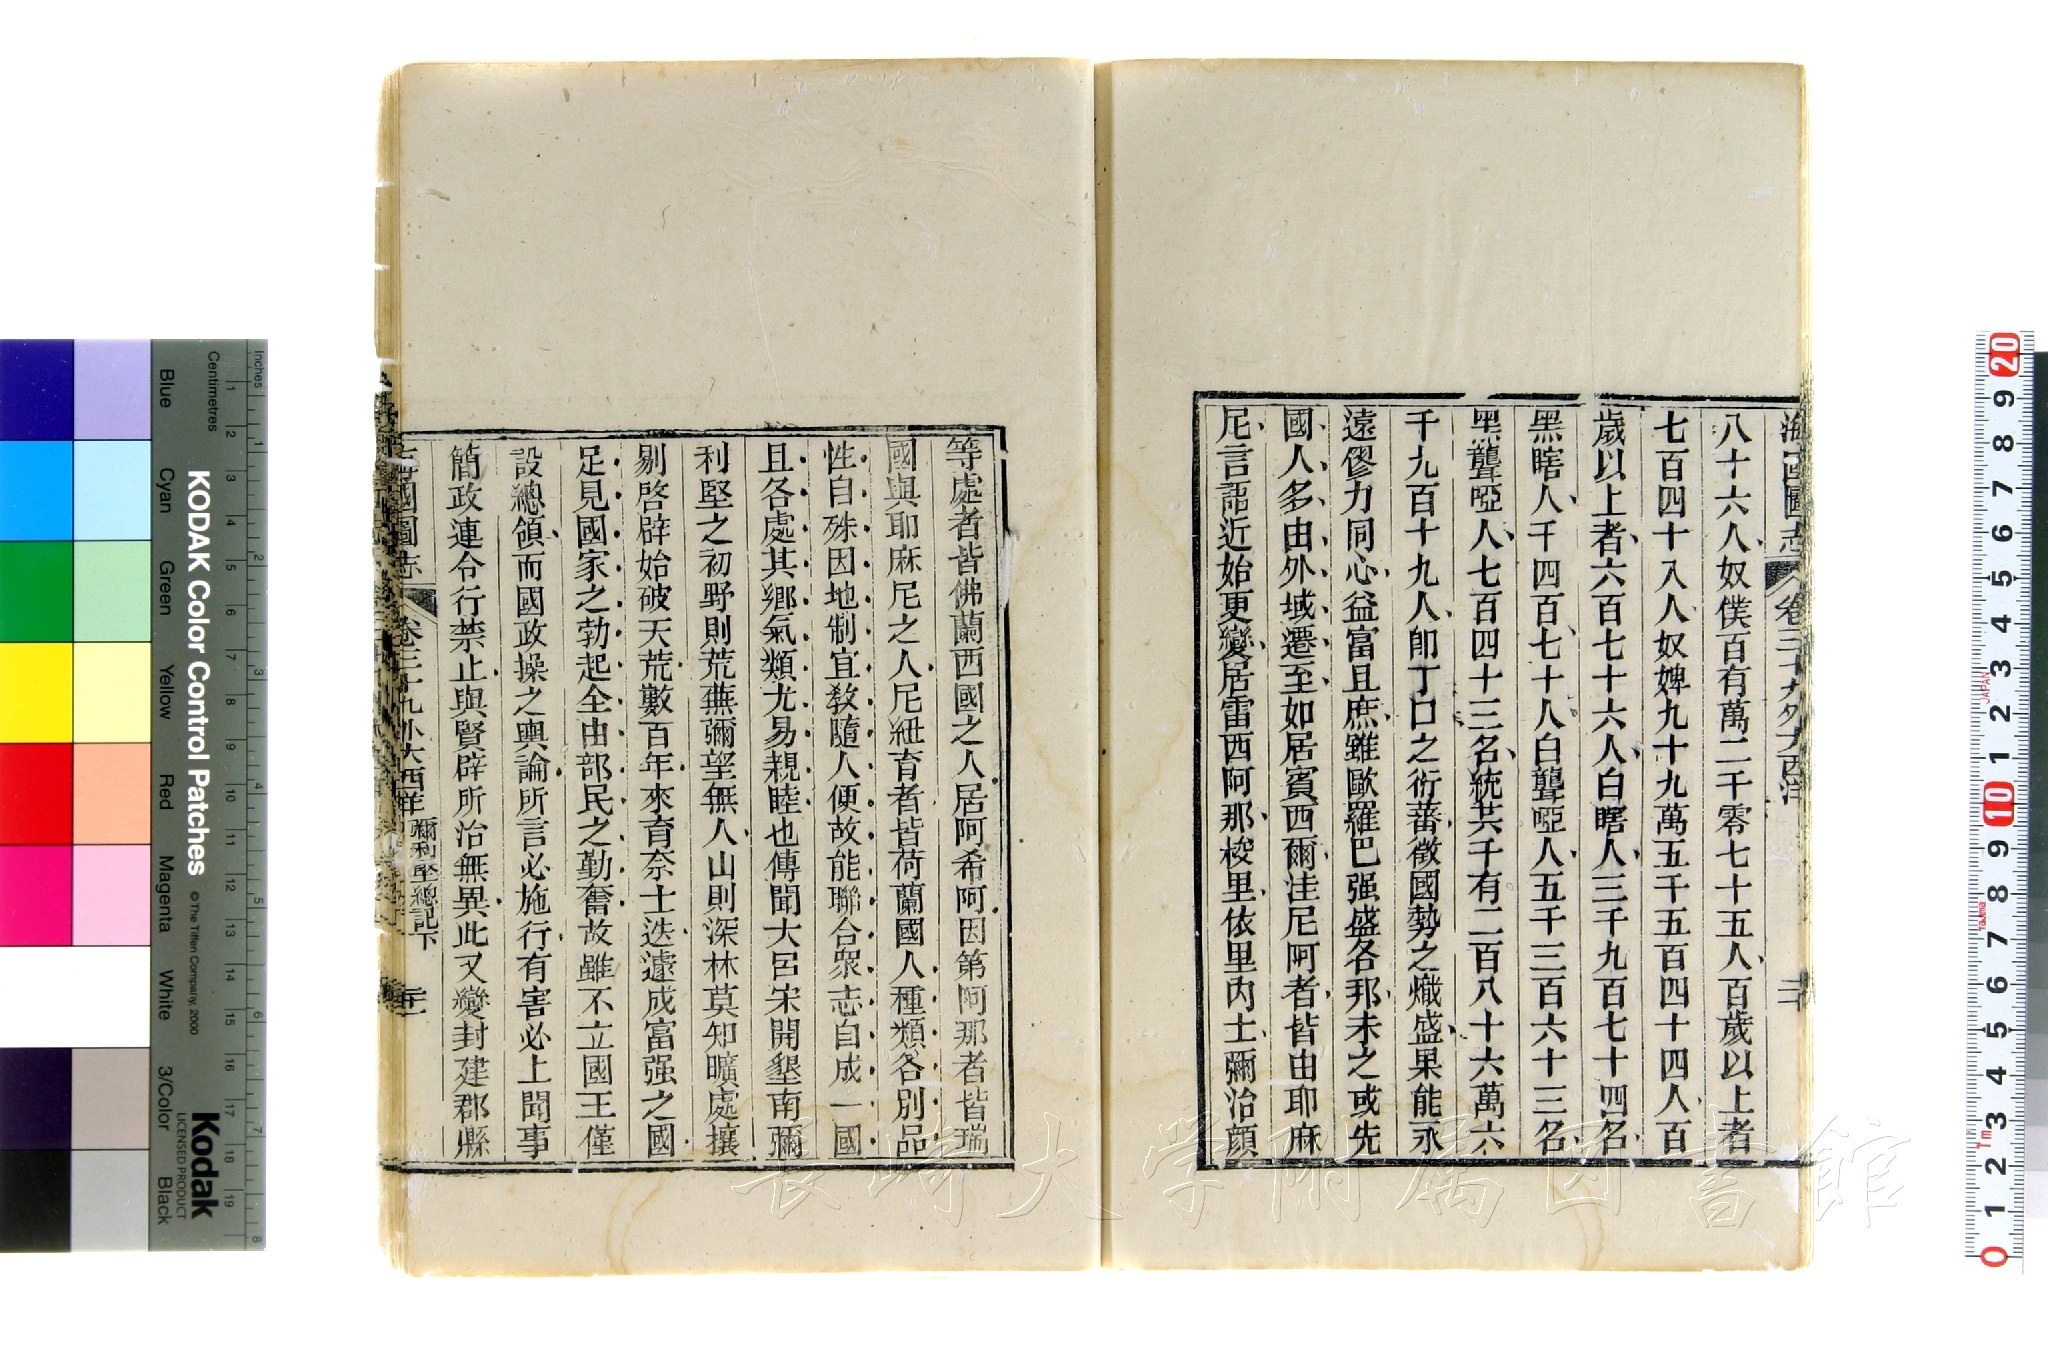 海國圖志 卷三十九外大西洋
八十六人奴僕百有萬二千零七十五人百歲以上者
七百四十人人奴婢九十九萬五千五百四十四人百
歲以上者六百七十六人白瞎人三千九百七十四名
黑瞎人千四百七十人白聾啞人五千三百六十三名
黑聾啞人七百四十三名統共千有二百八十六萬六
千九百十九人卽丁口之衍蕃徵國勢之熾盛果能永
遠僇力同心益富且庶雖歐羅巴强盛各邦未之或先
國人多由外域遷至如居賓西爾洼尼阿者皆由耶麻
尼言語近始更變居雷西阿那梭里依里內士彌治顔
等處者皆佛蘭西國之人居阿希阿因第阿那者皆瑞
國與耶麻尼之人尼紐育者皆荷蘭國人種類各別品
性自殊因地制宜敎隨人便故能聯合衆志自成一國
且各處其鄕氣類尤易親睦也傳聞大呂宋開墾南彌
利堅之初野則荒蕪彌望無人山則深林莫知曠處攘
剔啓辟始破天荒數百年來育奈士迭遽成富强之國
足見國家之勃起全由部民之勤奮故雖不立國王僅
設總領而國政操之輿論所言必施行有害必上聞事
簡政連令行禁止與賢辟所治無異此又變封建郡縣
海國圖志 卷三十九外大西洋 彌利堅總記下
長崎大学附属図書館
KODAK Color Control Patches
© The Tiffen Company, 2000
Kodak
LICENSED PRODUCT
Inches
Centimetres
Blue
Cyan
Green
Yellow
Red
Magenta
White
3/Color
Black
JAPAN